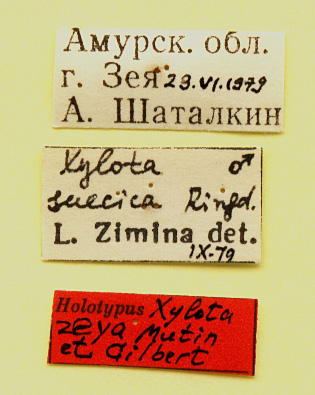 Амурск. обл.
г. Зея 23.VI.1979
А. Шаталкин
Xylota ♂
suecica Ringd.
L. Zimina det.
IX-79
Holotypus Xylota
zeya Mutin
et Gilbert